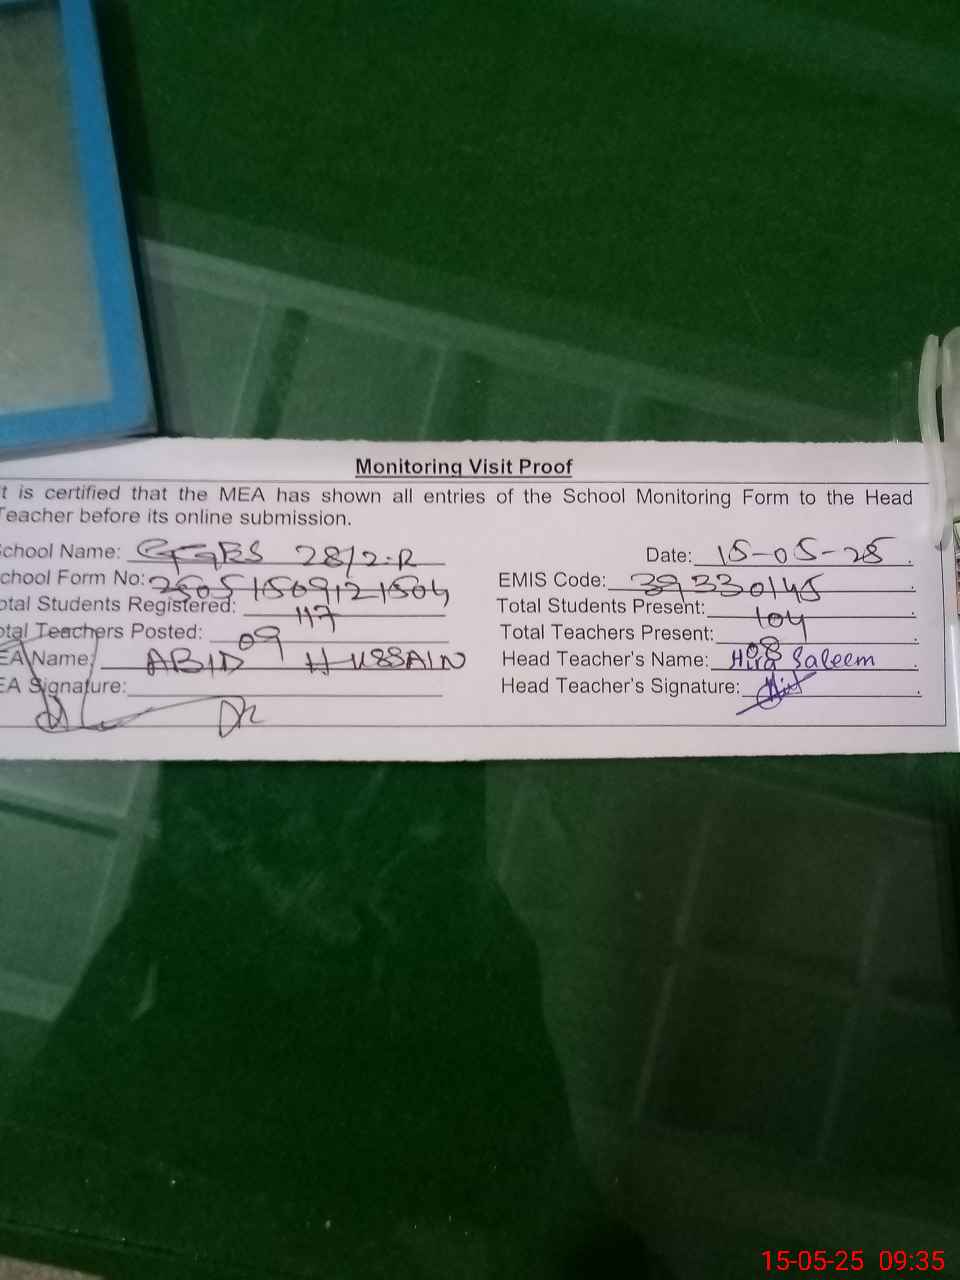 Monitoring Visit Proof
t is certified that the MEA has shown all entries of the School Monitoring Form to the Head
Teacher before its online submission.
chool Name: 28/2-R Date: 15-05-25
chool Form No: 25051509121504 EMIS Code: 39330145
otal Students Registered: 117 Total Students Present: 104
otal Teachers Posted: 09 Total Teachers Present: 08
EA Name: ABID HUSSAIN Head Teacher's Name: Hira Saleem
EA Signature: Head Teacher's Signature:
15-05-25 09:35